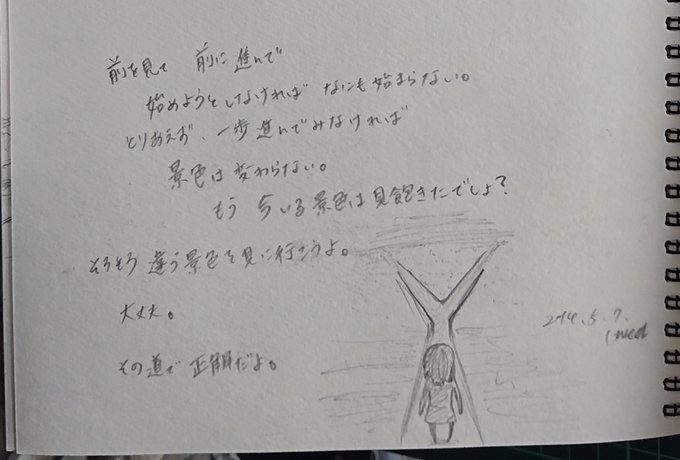 前を見て 前に進んで
始めようとしなければ なにも始まらない。
とりあえず、一歩進んでみなければ
景色は変わらない。
もう 今いる景色は見飽きたでしょ?
そろそろ 違う景色を見に行こうよ。
大丈夫。
その道で正解だよ。
2014.5.7.
(wed